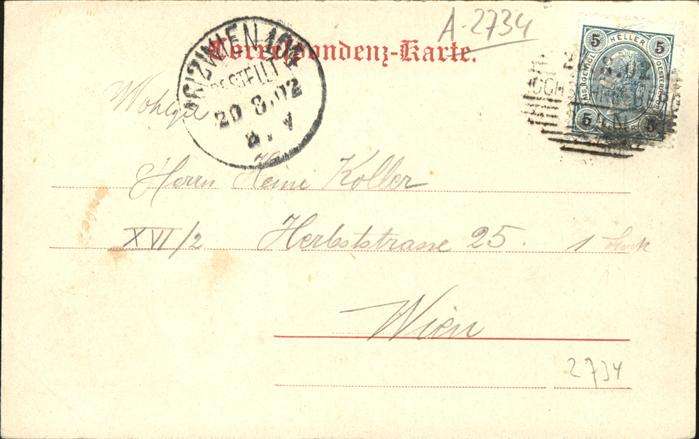 A-2734
Correspondenz-Karte.
5 HELLER 5
WIEN
BESTELLT
20.8.02
8.02
5 5
Herrn Heini Koller
XVI/2 Herbststrasse 25. 1
Wien
2734